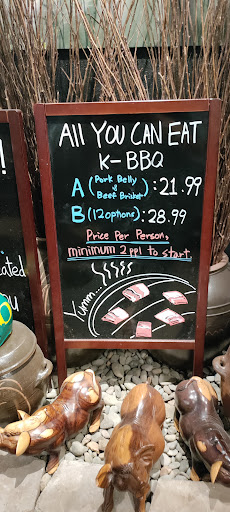 All YOU CAN EAT
K-BBQ
A (Pork Belly & Beef Brisket) : 21.99
B (12 options) : 28.99
Price Per Person,
minimum 2 ppl to start
Yumm...
!
cated
u